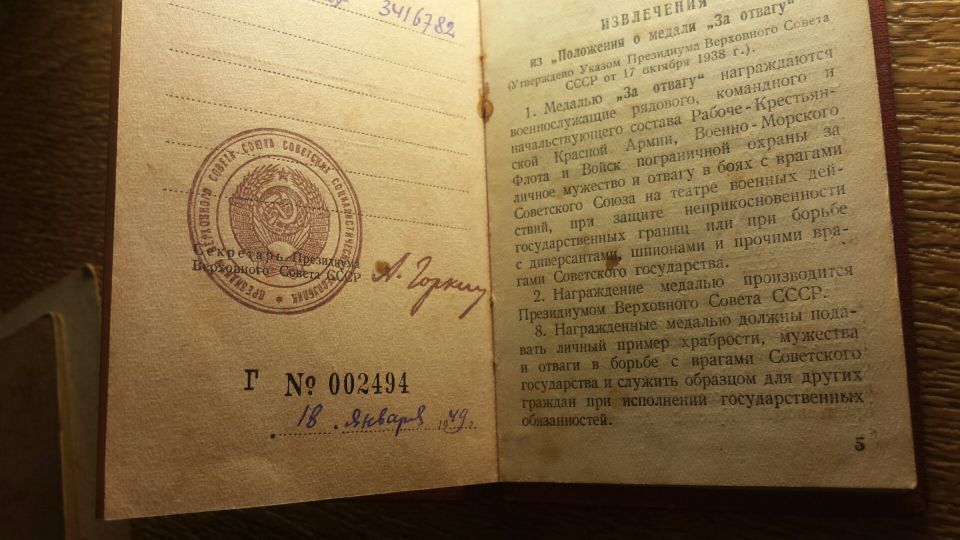 3416782
ПРЕЗИДИУМ ВЕРХОВНОГО СОВЕТА СОЮЗА СОВЕТСКИХ СОЦИАЛИСТИЧЕСКИХ РЕСПУБЛИК
Секретарь Президиума
Верховного Совета СССР
А. Горкин
Г № 002494
18 января 1949 г.
ИЗВЛЕЧЕНИЯ
из „Положения о медали „За отвагу“
(Утверждено Указом Президиума Верховного Совета
СССР от 17 октября 1938 г.).
1. Медалью „За отвагу“ награждаются
военнослужащие рядового, командного и
начальствующего состава Рабоче-Крестьян-
ской Красной Армии, Военно-Морского
Флота и Войск пограничной охраны за
личное мужество и отвагу в боях с врагами
Советского Союза на театре военных дей-
ствий, при защите неприкосновенности
государственных границ или при борьбе
с диверсантами, шпионами и прочими вра-
гами Советского государства.
2. Награждение медалью производится
Президиумом Верховного Совета СССР.
8. Награжденные медалью должны пода-
вать личный пример храбрости, мужества
и отваги в борьбе с врагами Советского
государства и служить образцом для других
граждан при исполнении государственных
обязанностей.
5